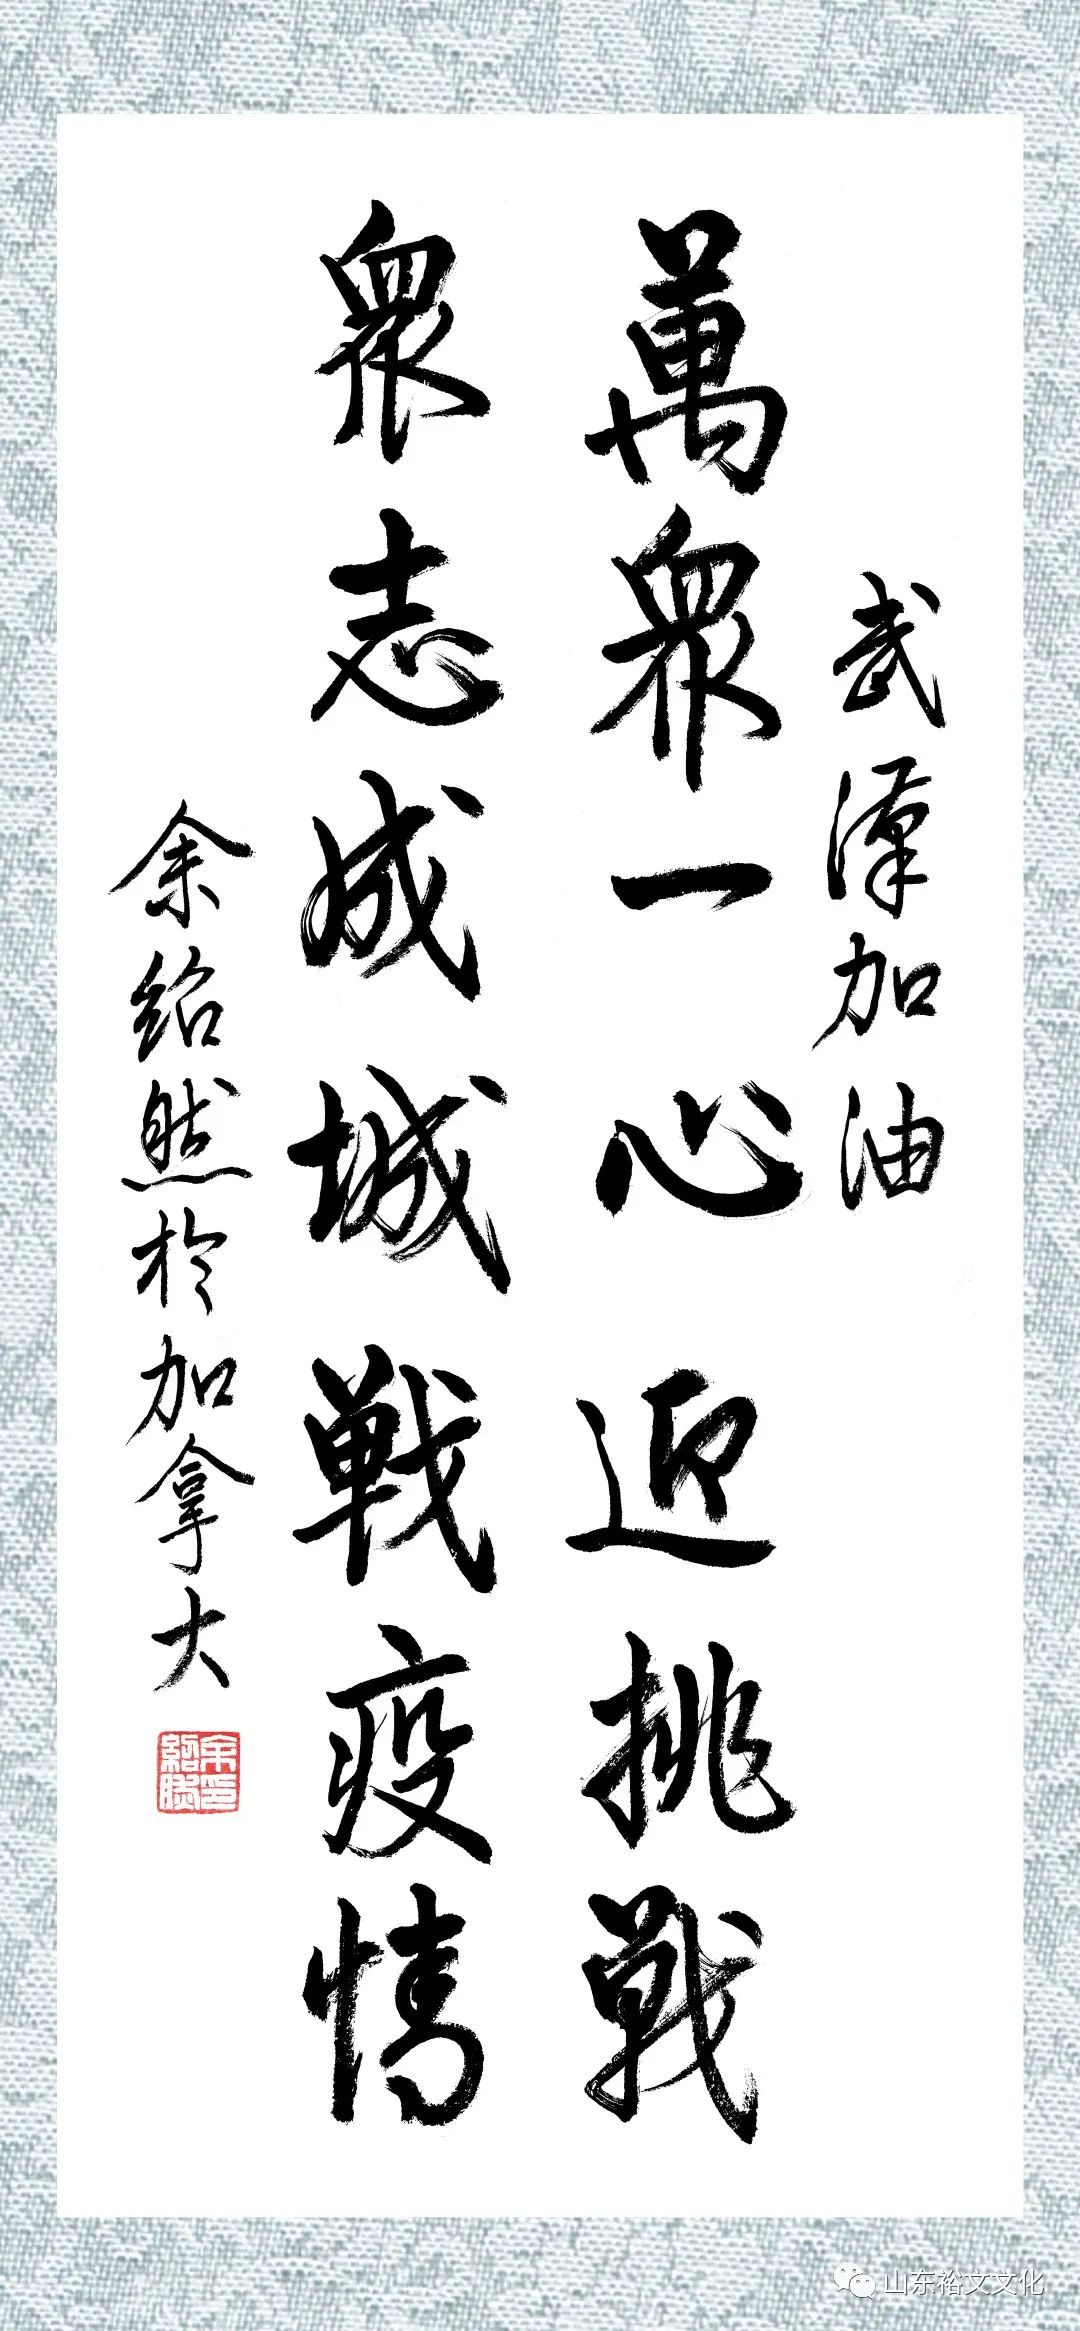 武漢加油
萬眾一心迎挑戰
眾志成城戰疫情
余紹然於加拿大
余印紹然
山东裕文文化